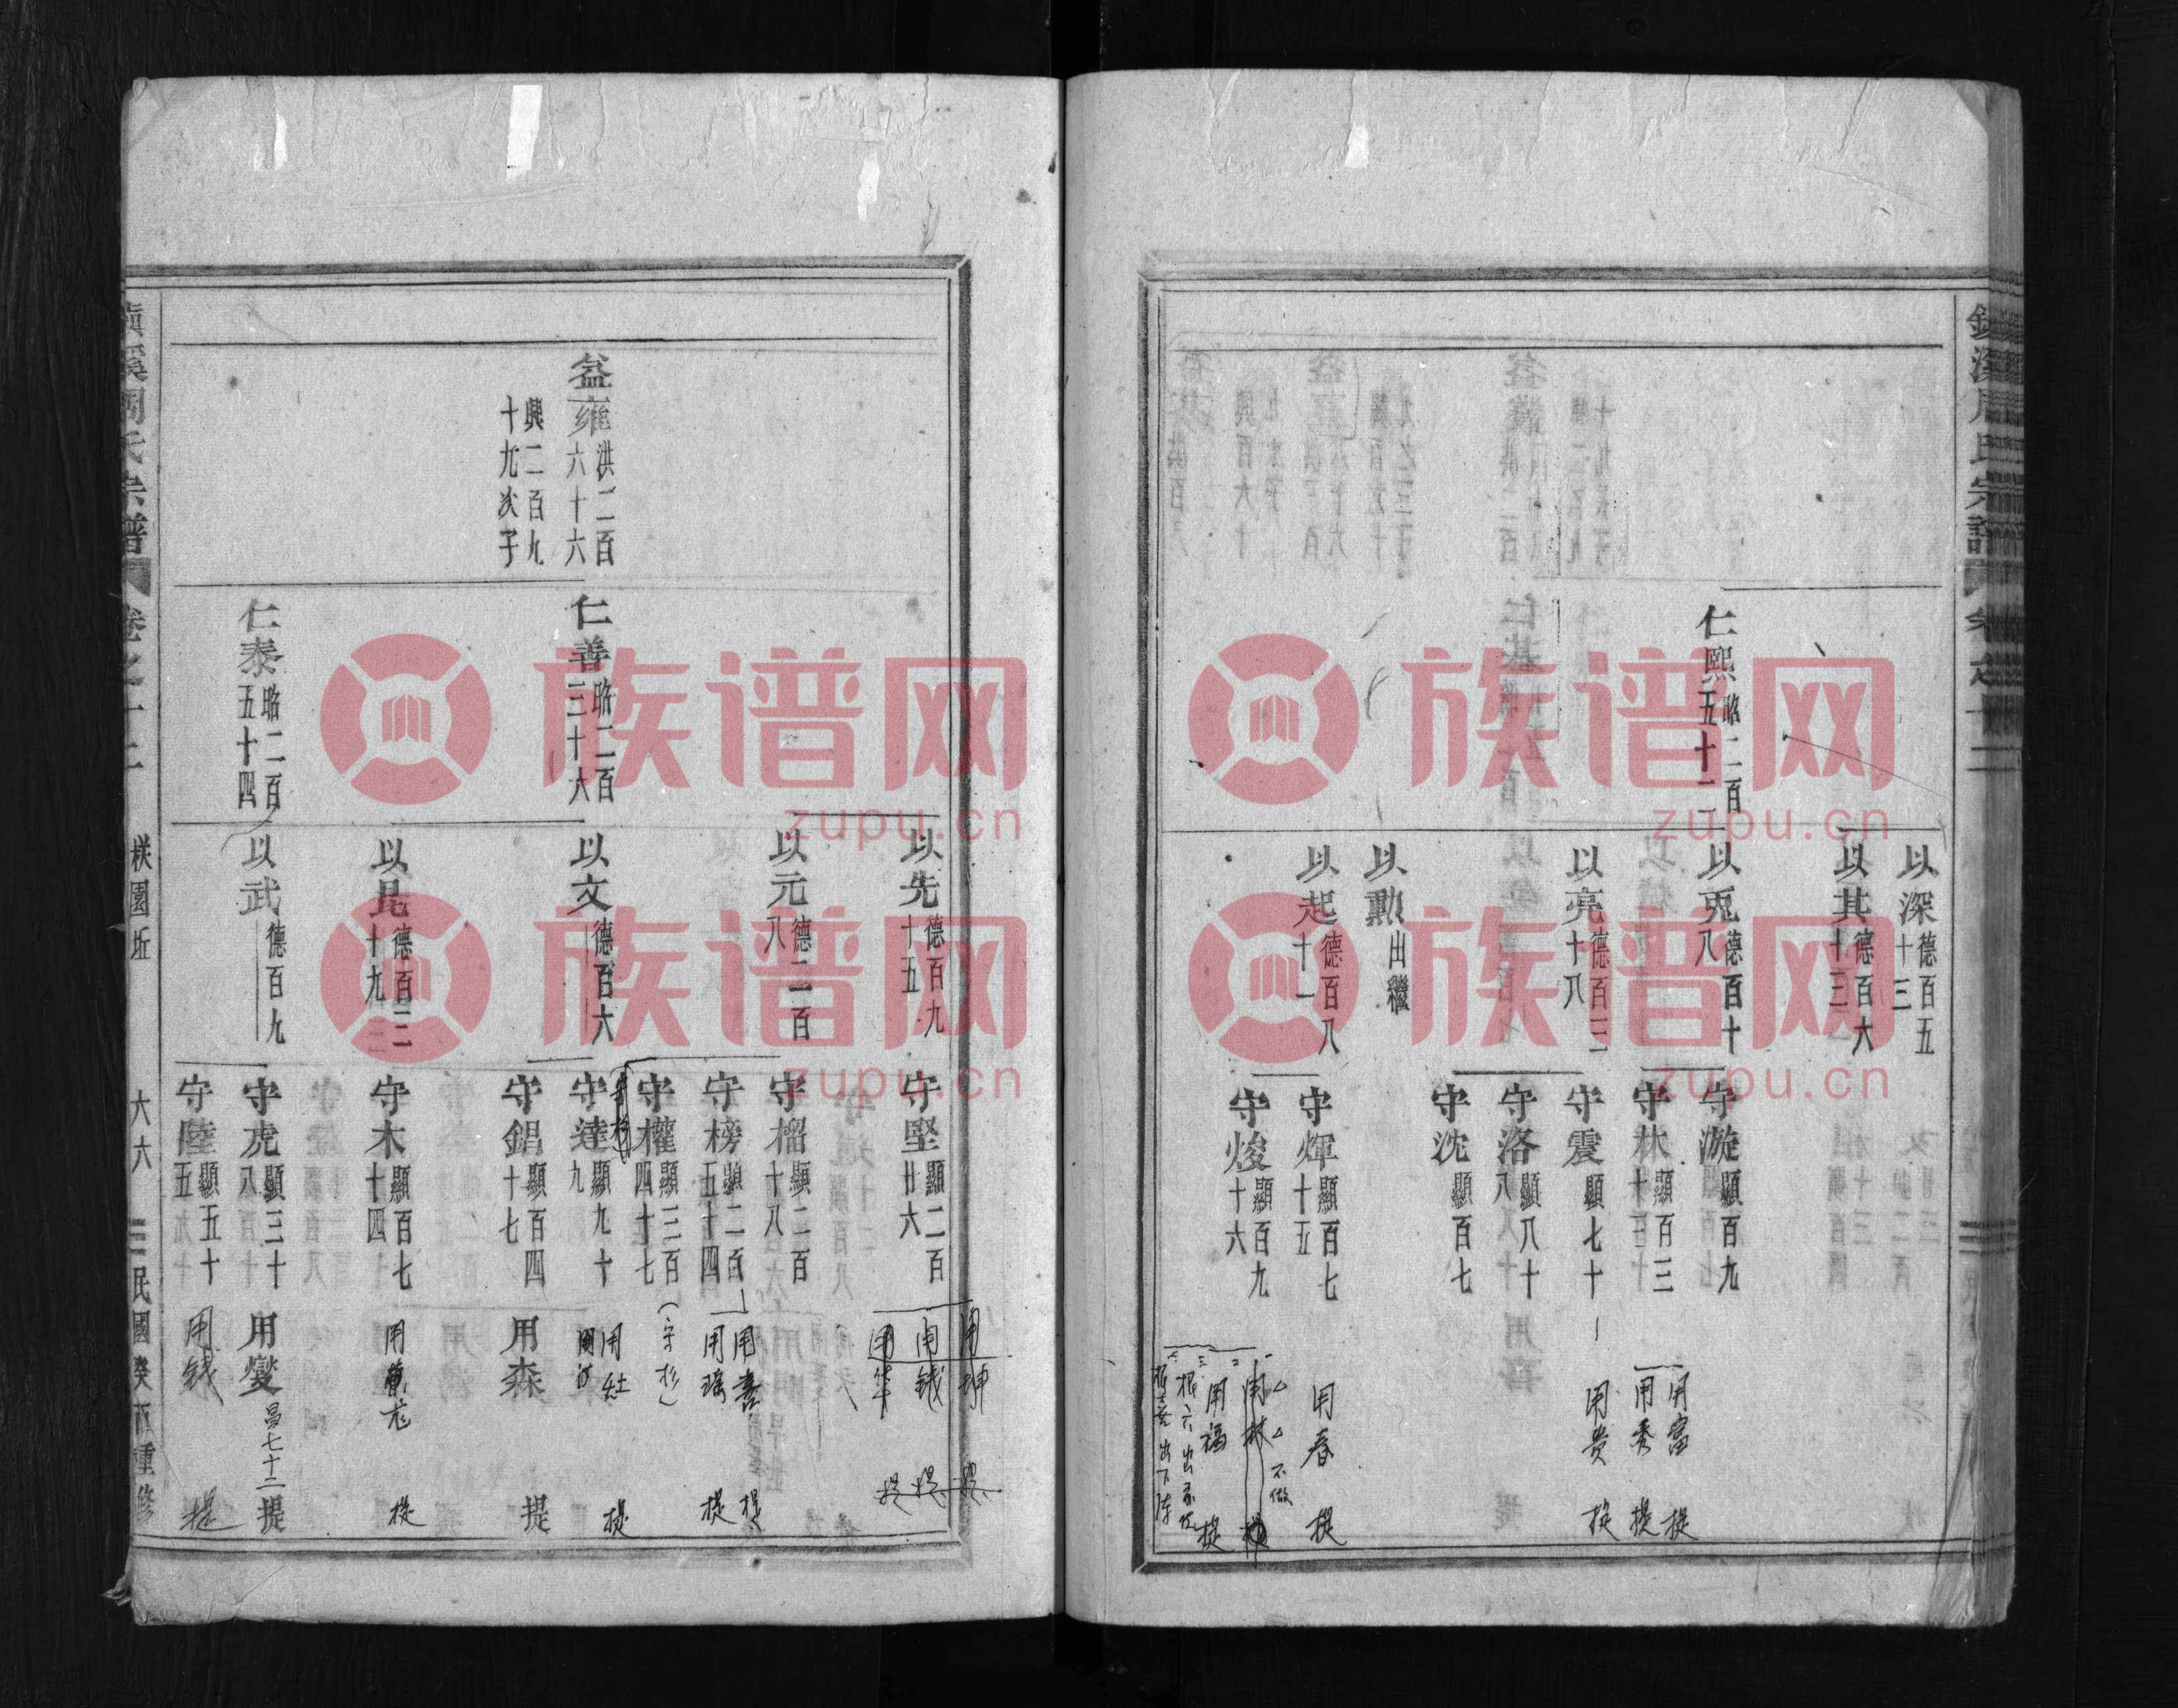 周氏宗譜
仁熙
昭二百
五十二
以深
德百五
十三
以其
德百六
十三
以兎
德百十
八
以亮
德百三
十八
以勳
出繼
以起
德百八
十一
守漩
顯百九
守林
顯百三
十
守震
顯七十
守洛
顯八十
八
守沈
顯百七
守煇
顯百七
十五
守焌
顯百九
十六
用富
提
用秀
提
用贵
提
用春
提
不做
用林
用福
提
益雍
洪二百
六十六
興二百九
十九次子
仁善
昭二百
三十六
仁泰
昭二百
五十四
以先
德百九
十五
以元
德二百
八
以文
德百六
以昆
德百二
十九
以武
德百九
守堅
顯二百
廿六
守榴
顯二百
十八
守榜
顯二百
五十四
守權
顯三百
四十七
守達
顯九十
九
守錩
顯百四
十七
守木
顯百七
十四
守虎
顯三十
八
守陸
顯五十
五
用坤
提
用钱
提
用華
提
用喜
提
用瑶
提
(守杉)
用灶
提
用森
提
用龙
提
用燮
昌七十二
提
用钱
提
周氏宗譜
卷之十二
六六
民國癸酉重修
族谱网
zupu.cn
族谱网
zupu.cn
族谱网
zupu.cn
族谱网
zupu.cn